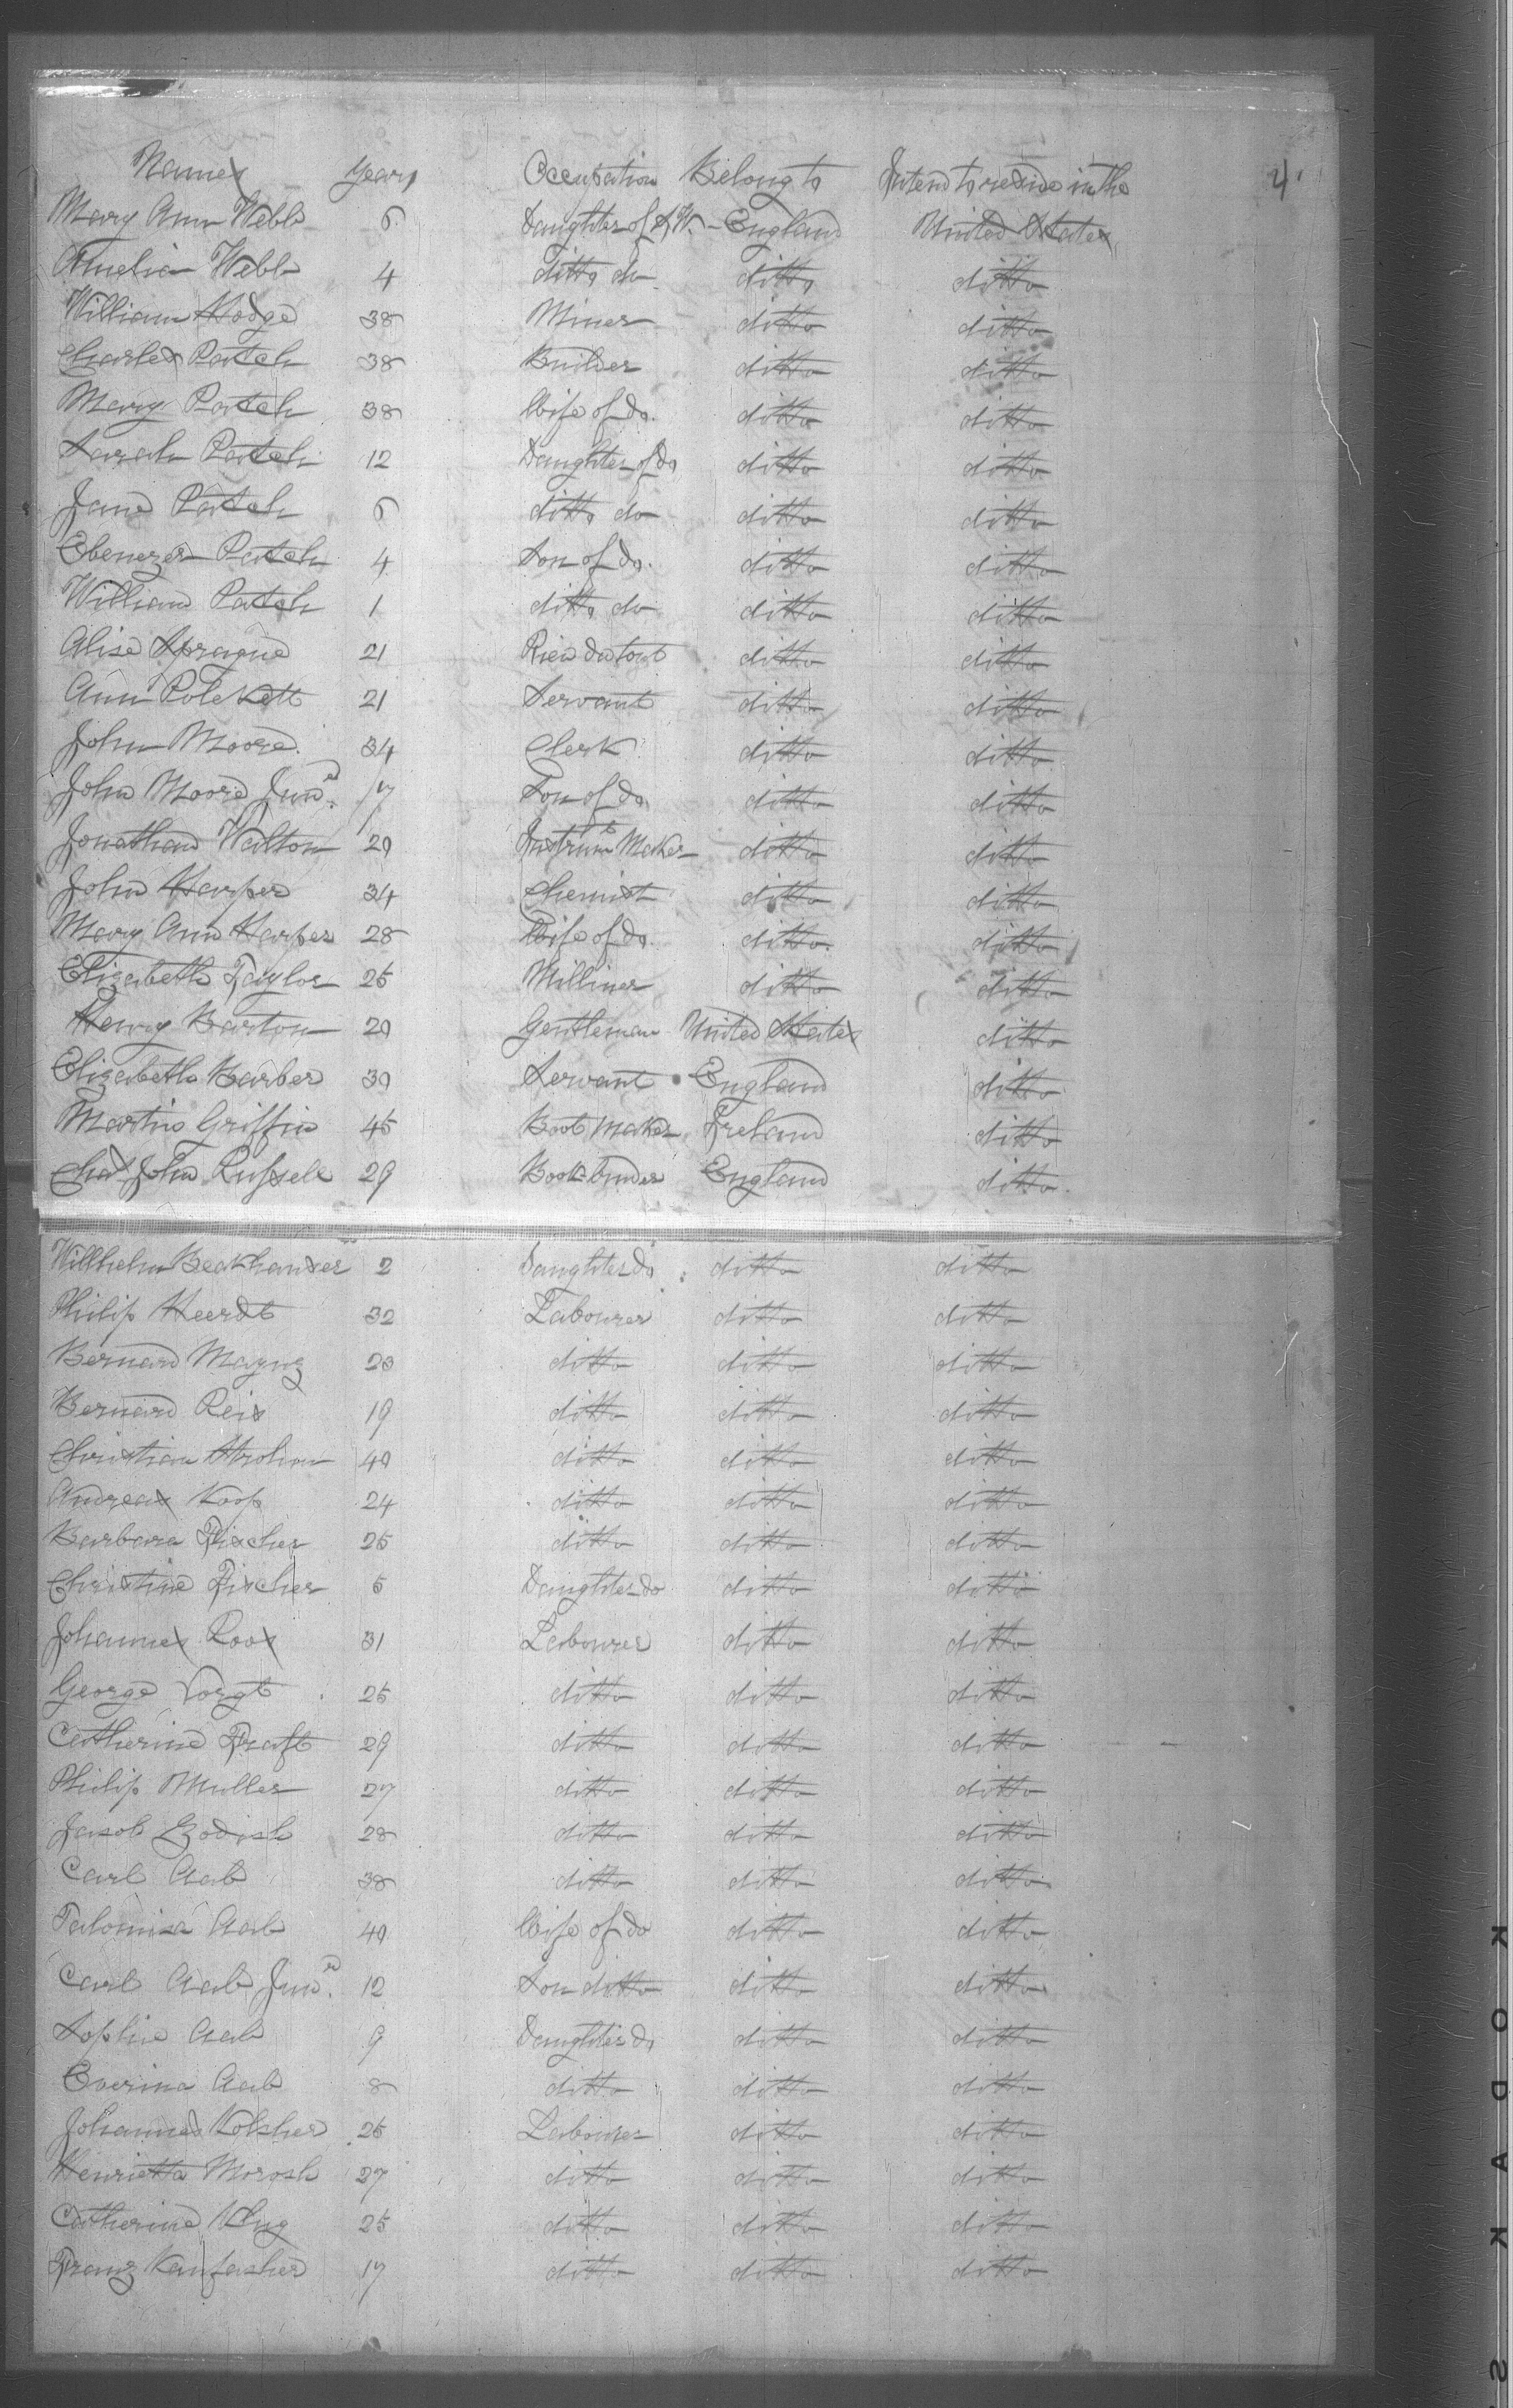 Names Years Occupation Belong to Intend to reside in the 4.
Mary Ann Webb 6 Daughter of S.W. England United States
Amelia Webb 4 ditto do ditto ditto
William Hodge 38 Miner ditto ditto
Charles Patch 38 Builder ditto ditto
Mary Patch 38 Wife of do. ditto ditto
Sarah Patch 12 Daughter of do ditto ditto
Jane Patch 6 ditto do ditto ditto
Ebenezer Patch 4 Son of do. ditto ditto
William Patch 1 ditto do ditto ditto
Alise Sprague 21 Rien du tout ditto ditto
Ann Polekett 21 Servant ditto ditto
John Moore 34 Clerk ditto ditto
John Moore Junr. 17 Son of do ditto ditto
Jonathan Walton 29 Instrumt Maker ditto ditto
John Harper 34 Chemist ditto ditto
Mary Ann Harper 28 Wife of do. ditto ditto
Elizabeth Taylor 25 Milliner ditto ditto
Henry Barton 29 Gentleman United States ditto
Elizabeth Barber 39 Servant England ditto
Martin Griffin 45 Boot Maker Ireland ditto
Chas John Russell 29 Book-binder England ditto
Willhelm Beakhauser 2 Daughter do ditto ditto
Philip Heerdt 32 Labourer ditto ditto
Bernard Maynz ditto ditto ditto
Bernard Reis 19 ditto ditto ditto
Christian Strohm 49 ditto ditto ditto
Andreas Koop 24 ditto ditto ditto
Barbara Fischer 25 ditto ditto ditto
Christine Fischer 5 Daughter do ditto ditto
Johannes Roos 31 Labourer ditto ditto
George Vorgt 25 ditto ditto ditto
Catherine Kraft 29 ditto ditto ditto
Philip Muller 27 ditto ditto ditto
Jacob 28 ditto ditto ditto
Carl Aab 38 ditto ditto ditto
Aab 49 Wife of do ditto ditto
Carl Aab Junr. 12 Son ditto ditto ditto
Sophie Aab 9 Daughter do ditto ditto
Everina Aab 8 ditto ditto ditto
Johannes Kolsher 25 Labourer ditto ditto
Henrietta Morosh 27 ditto ditto ditto
Catherine Klug 25 ditto ditto ditto
Franz 17 ditto ditto ditto
KODAK S